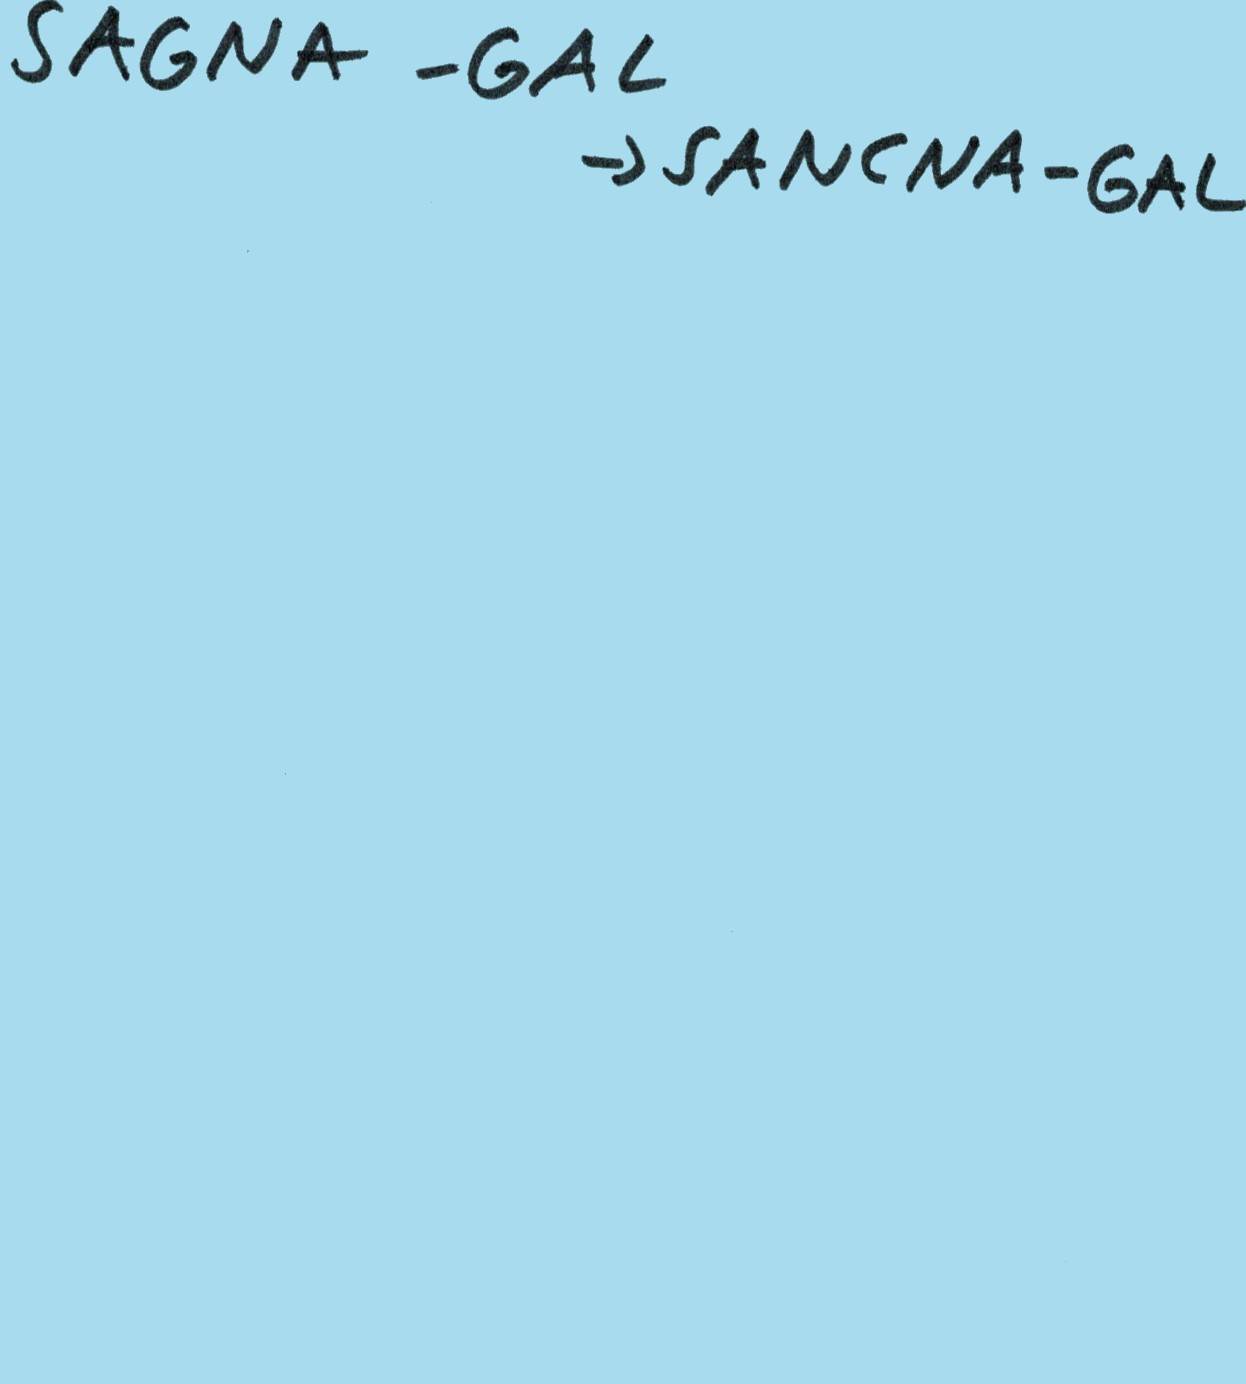 SAGNA -GAL
→ SANCNA-GAL